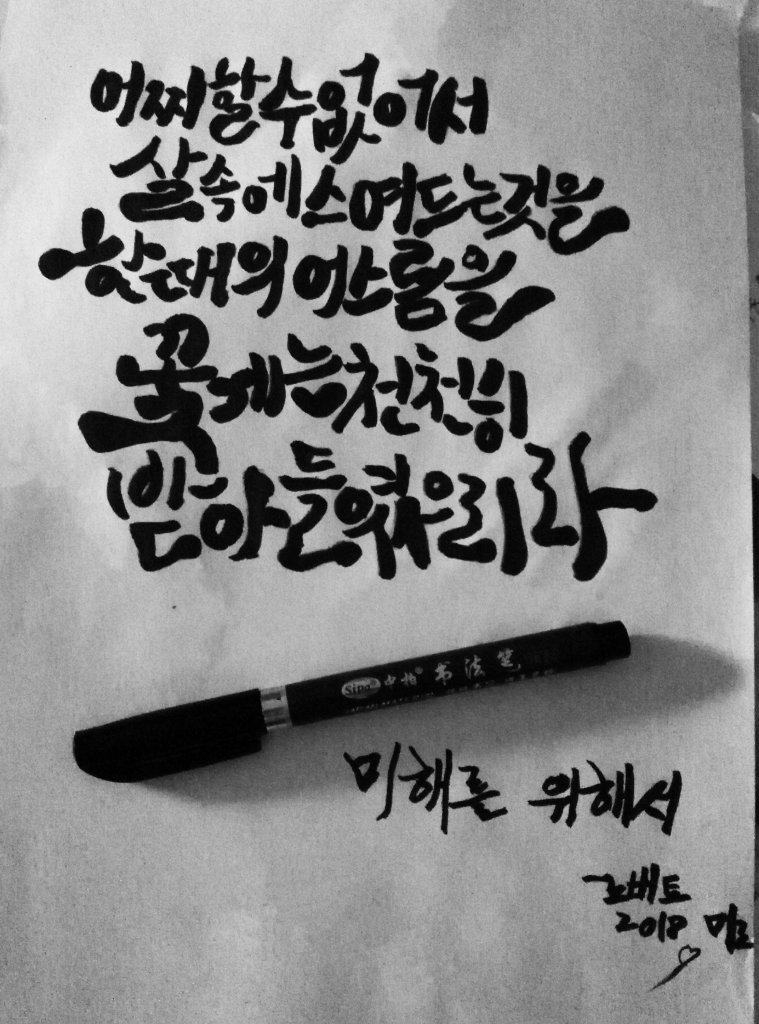 어찌할수없어서
살속에스며드는것을
한때의 어스름을
꽃게는천천히
받아들였으리라
Sipa® 中柏® 书法笔
미해를 위해서
로베토
2018